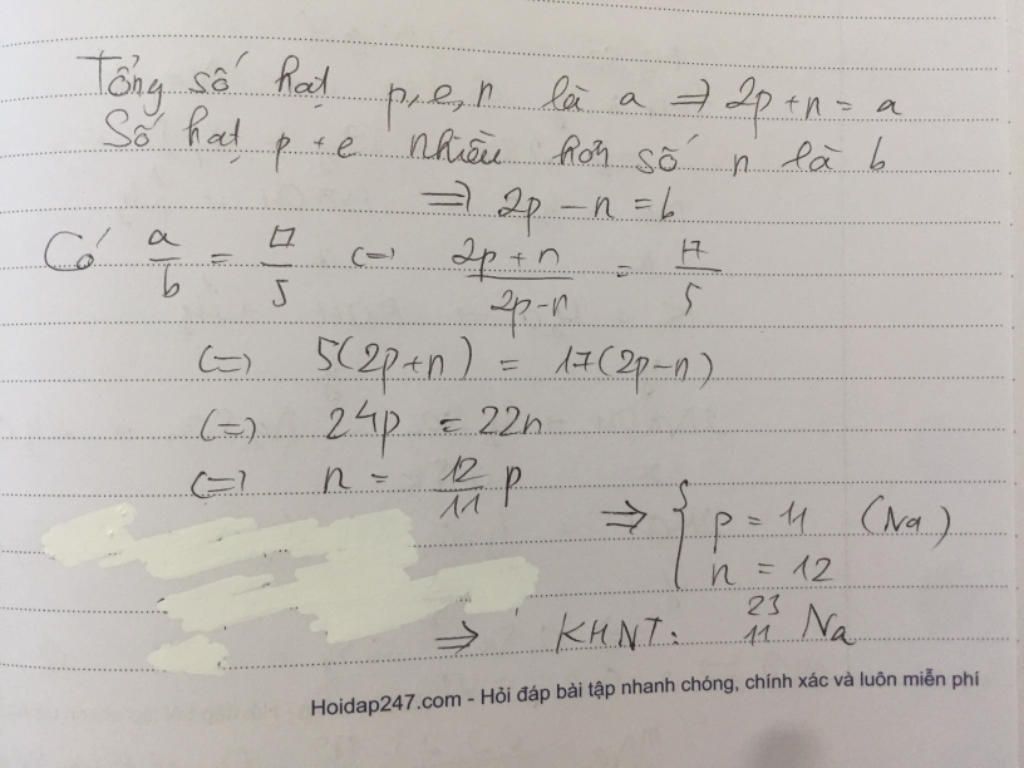 Tổng số hạt p, e, n là a => 2p + n = a
Số hạt p + e nhiều hơn số n là b
=> 2p - n = b
Có a/b = 17/5 <=> (2p + n)/(2p - n) = 17/5
<=> 5(2p+n) = 17(2p-n)
<=> 24p = 22n
<=> n = 12/11 p
=> { p = 11 (Na)
n = 12
=> KHNT: ²³₁₁Na
Hoidap247.com - Hỏi đáp bài tập nhanh chóng, chính xác và luôn miễn phí